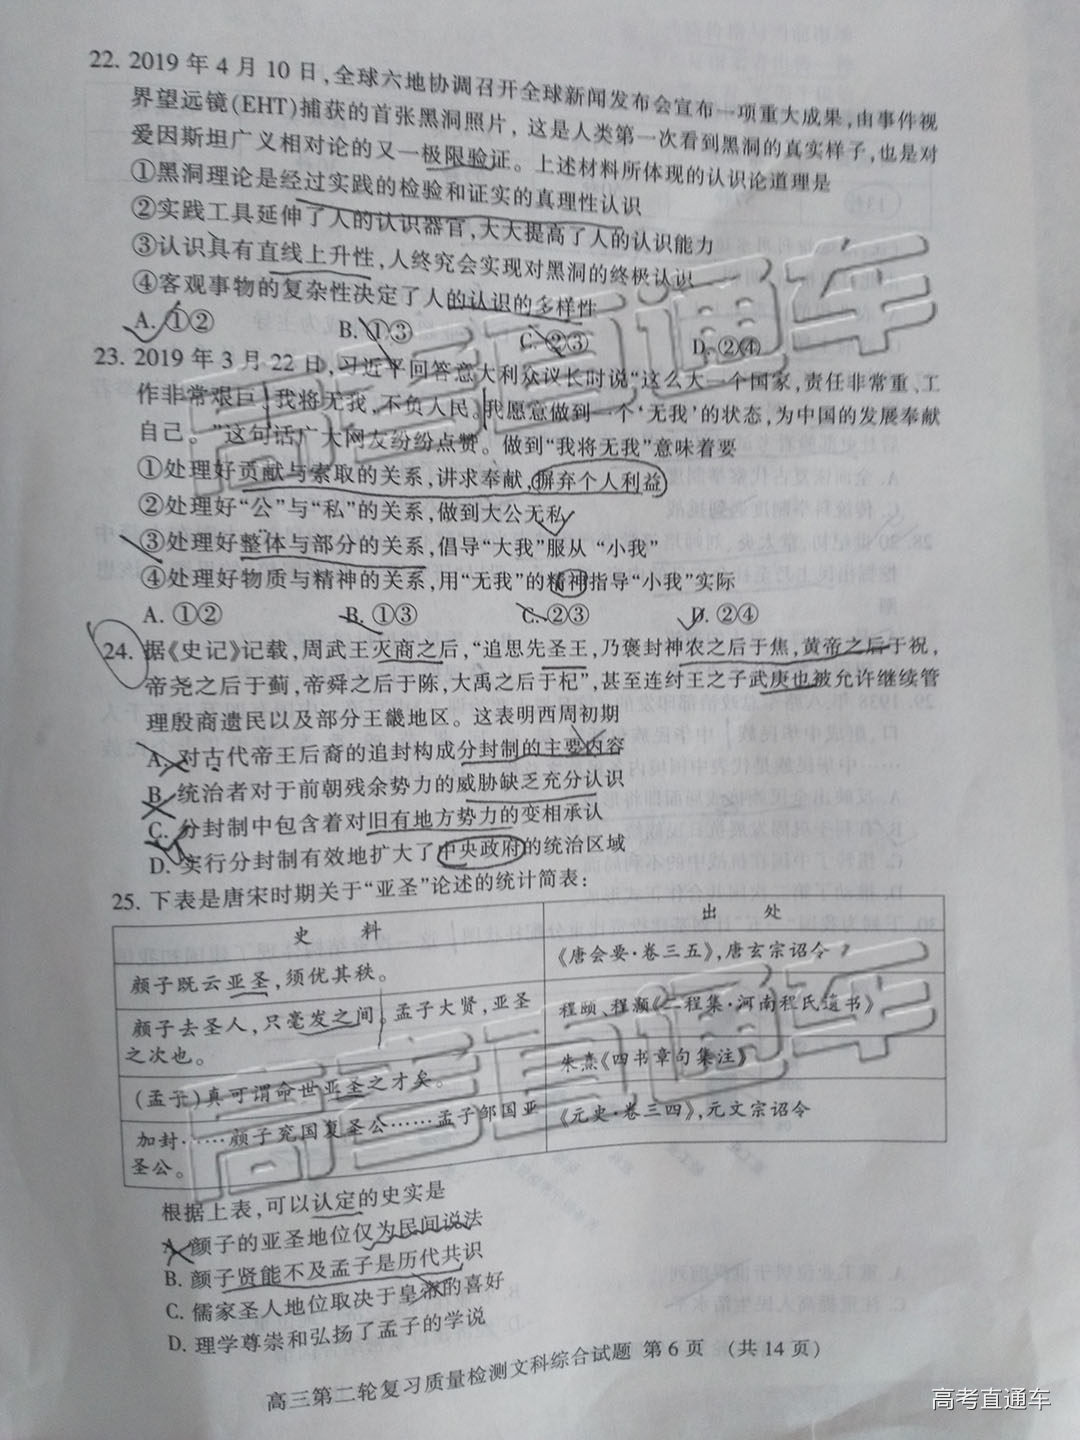 22. 2019年4月10日,全球六地协调召开全球新闻发布会宣布一项重大成果,由事件视
界望远镜(EHT)捕获的首张黑洞照片，这是人类第一次看到黑洞的真实样子,也是对
爱因斯坦广义相对论的又一极限验证。上述材料所体现的认识论道理是
①黑洞理论是经过实践的检验和证实的真理性认识
②实践工具延伸了人的认识器官,大大提高了人的认识能力
③认识具有直线上升性,人终究会实现对黑洞的终极认识
④客观事物的复杂性决定了人的认识的多样性
A. ①② B. ①③ C. ②③ D. ②④
23. 2019年3月22日,习近平回答意大利众议长时说“这么大一个国家,责任非常重、工
作非常艰巨。我将无我,不负人民。我愿意做到一个‘无我’的状态,为中国的发展奉献
自己。”这句话广大网友纷纷点赞。做到“我将无我”意味着要
①处理好贡献与索取的关系,讲求奉献,摒弃个人利益
②处理好“公”与“私”的关系,做到大公无私
③处理好整体与部分的关系,倡导“大我”服从“小我”
④处理好物质与精神的关系,用“无我”的精神指导“小我”实际
A. ①② B. ①③ C. ②③ D. ②④
24. 据《史记》记载,周武王灭商之后,“追思先圣王,乃褒封神农之后于焦,黄帝之后于祝,
帝尧之后于蓟,帝舜之后于陈,大禹之后于杞”,甚至连纣王之子武庚也被允许继续管
理殷商遗民以及部分王畿地区。这表明西周初期
A. 对古代帝王后裔的追封构成分封制的主要内容
B. 统治者对于前朝残余势力的威胁缺乏充分认识
C. 分封制中包含着对旧有地方势力的变相承认
D. 实行分封制有效地扩大了中央政府的统治区域
25. 下表是唐宋时期关于“亚圣”论述的统计简表:
史 料 出 处
颜子既云亚圣,须优其秩。 《唐会要·卷三五》,唐玄宗诏令
颜子去圣人,只毫发之间。孟子大贤,亚圣 程颐、程颢《二程集·河南程氏遗书》
之次也。
(孟子)真可谓命世亚圣之才矣。 朱熹《四书章句集注》
加封……颜子兖国复圣公……孟子邹国亚 《元史·卷三四》,元文宗诏令
圣公。
根据上表,可以认定的史实是
A. 颜子的亚圣地位仅为民间说法
B. 颜子贤能不及孟子是历代共识
C. 儒家圣人地位取决于皇帝的喜好
D. 理学尊崇和弘扬了孟子的学说
高三第二轮复习质量检测文科综合试题 第6页 (共14页)
高考直通车
高考直通车
高考直通车